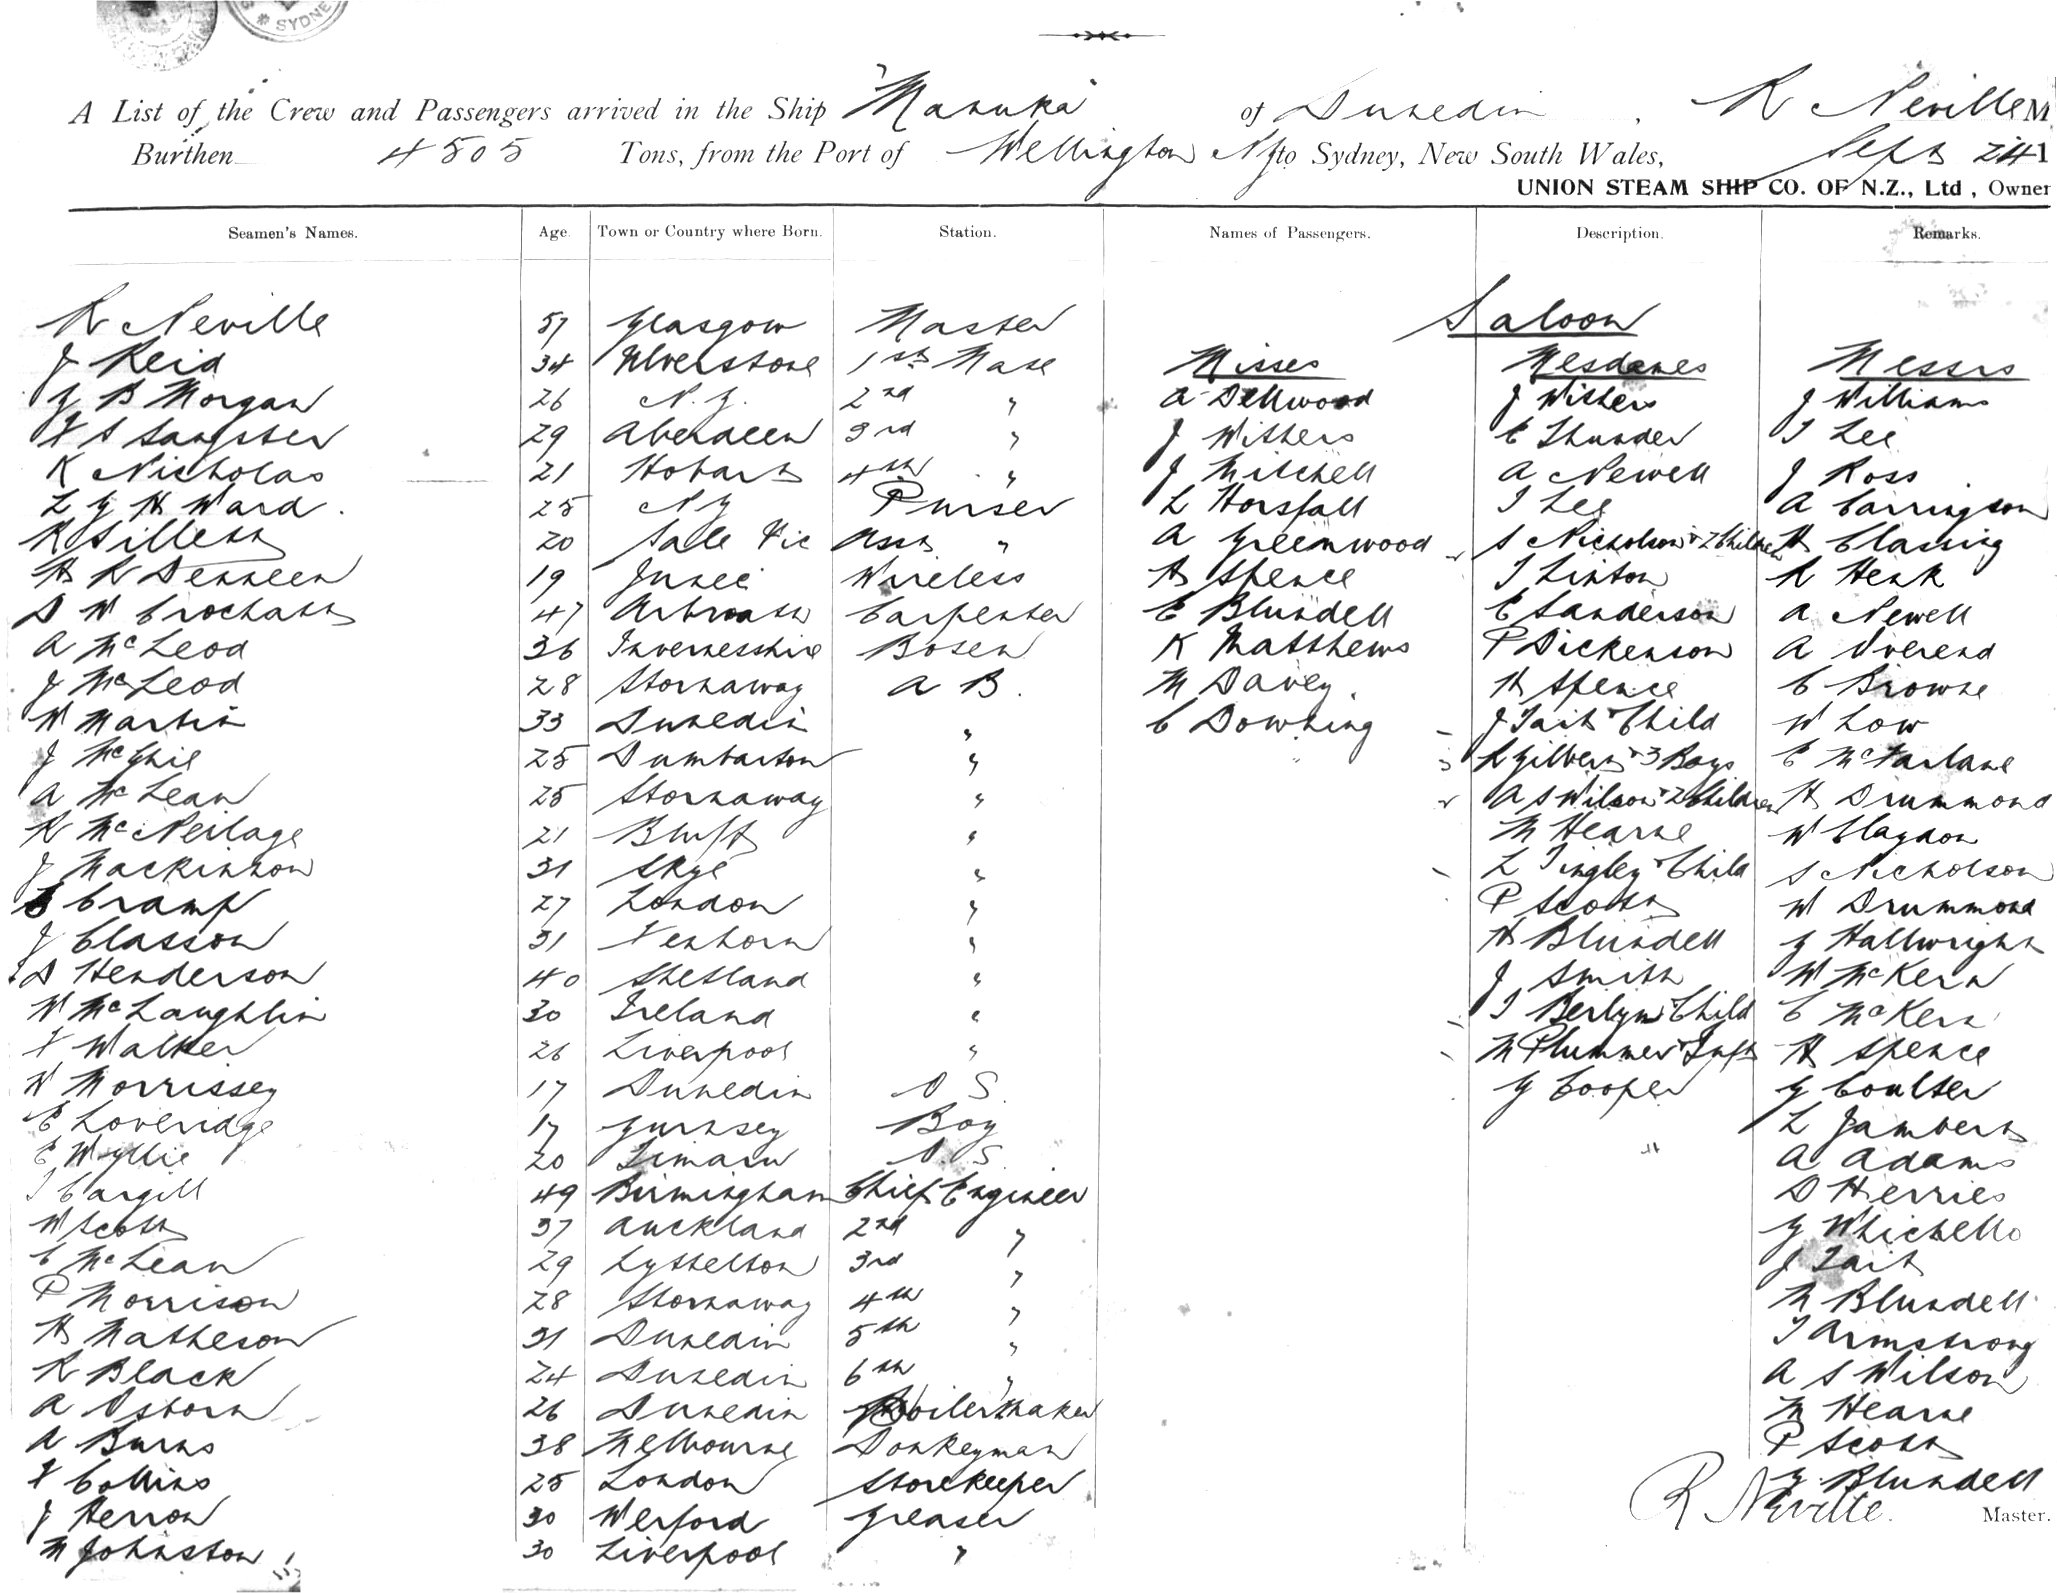 SYDNE
A List of the Crew and Passengers arrived in the Ship "Manuka" of Dunedin, R Neville M
Burthen 4505 Tons, from the Port of Wellington NZ to Sydney, New South Wales, Sept 24 1
UNION STEAM SHIP CO. OF N.Z., Ltd, Owner
Seamen's Names. Age. Town or Country where Born. Station. Names of Passengers. Description. Remarks.
Saloon
R Neville 57 Glasgow Master
J Reid 34 Ulverstone 1st Mate Misses Mesdames Messrs
G B Morgan 26 N.Z. 2nd " A Dellwood J Withers J Williams
F S Sangster 29 Aberdeen 3rd " J Withers E Thunder T Lee
K Nicholas 21 Hobart 4th " J Mitchell A Newell J Ross
L G H Ward. 25 NZ Purser L Horsfall T Lee A Carrington
R Sillett 20 Sale Vic Asst " A Greenwood S Nicholson + 2 Children H Classing
H R Denneen 19 Junee Wireless H Spence T Linton R Henk
D W Crochatt 47 Arbroath Carpenter E Blundell E Sanderson A Newell
A McLeod 36 Invernesshire Bosen K Matthews P Dickenson A Overend
J McLeod 28 Stornaway A B. M Davey. H Spence C Browne
W Martin 33 Dunedin " C Downing J Tait + Child W Low
J McGhie 25 Dumbarton " 3 R Gilbert + 3 Boys E McFarlane
A McLean 25 Stornaway " A S Wilson + 2 Children H Drummond
R McNeilage 21 Bluff " M Hearne W Claydon
J Mackinnon 31 Skye " L Tingley + Child S Nicholson
Cramp 27 London " P Scott W Drummond
J Classon 31 Fenhorn " H Blundell G Hallwright
D Henderson 40 Shetland " J Smith W McKern
W McLaughlin 30 Ireland " T Berlyn + Child C McKern
F Walker 26 Liverpool " M Plummer + Inft H Spence
W Morrissey 17 Dunedin O S. G Cooper G Coulter
E Loveridge 17 Gurnsey Boy L Jambert
E Wyllie 20 Timaru O. S. A Adams
T Cargill 49 Birmingham Chief Engineer D Herries
W Scott 37 Auckland 2nd " G Whichello
C McLean 29 Lyttelton 3rd " J Tait
P Morrison 28 Stornaway 4th " M Blundell
H Matheson 31 Dunedin 5th " T Armstrong
R Black 24 Dunedin 6th " A S Wilson
A Osborn 26 Dunedin Boilermaker M Hearne
A Burns 38 Melbourne Donkeyman P Scott
F Collins 25 London Storekeeper G. Blundell
J Herron 30 Werford Greaser R Neville. Master.
M Johnston 30 Liverpool "